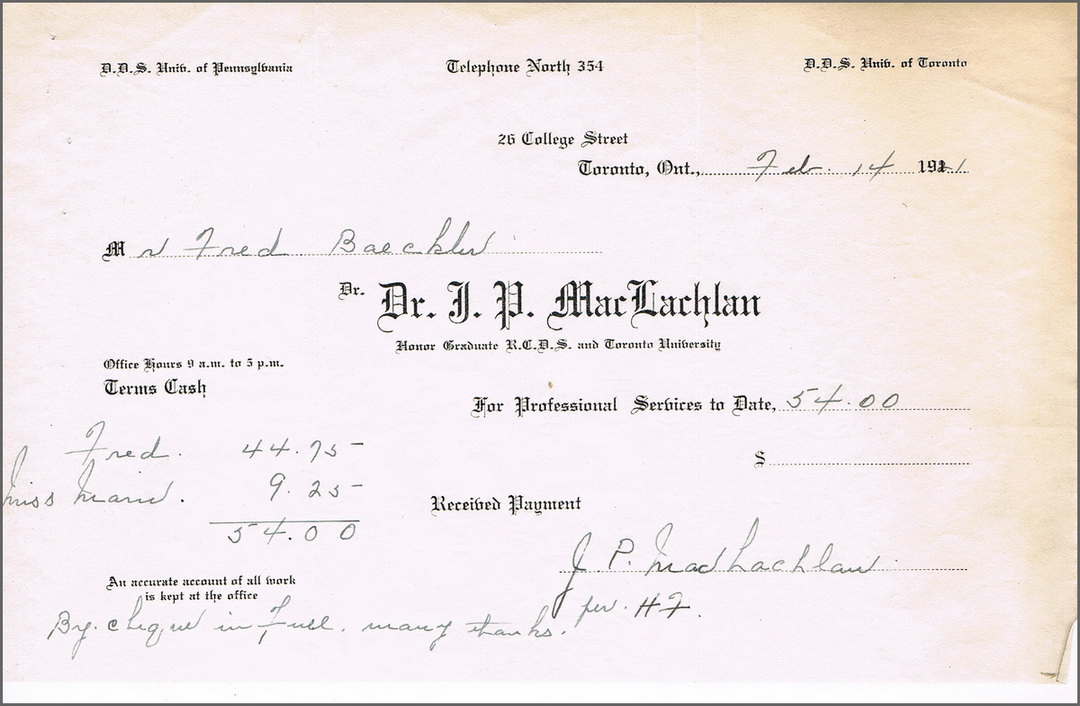 D.D.S. Univ. of Pennsylvania Telephone North 354 D.D.S. Univ. of Toronto
26 College Street
Toronto, Ont., Feb. 14 1921
Mr Fred Baechler
Dr. Dr. J. P. MacLachlan
Honor Graduate R.C.D.S. and Toronto University
Office Hours 9 a.m. to 5 p.m.
Terms Cash
For Professional Services to Date, 54.00
Fred. 44.75
$
Miss Marie. 9.25
Received Payment
54.00
J. P. MacLachlan
An accurate account of all work
is kept at the office
per. H F.
By. cheque in Full. many thanks.